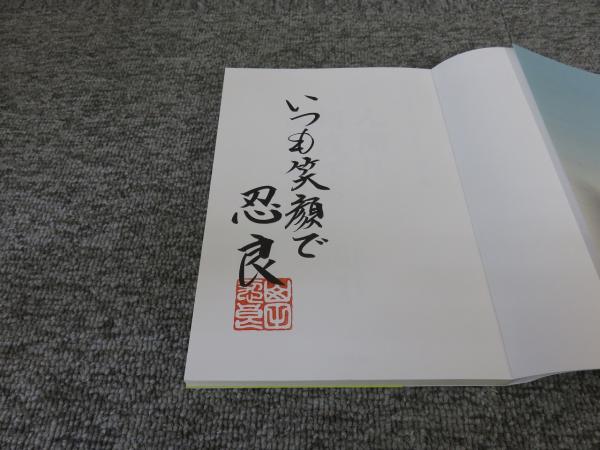 いつも笑顔で
忍良